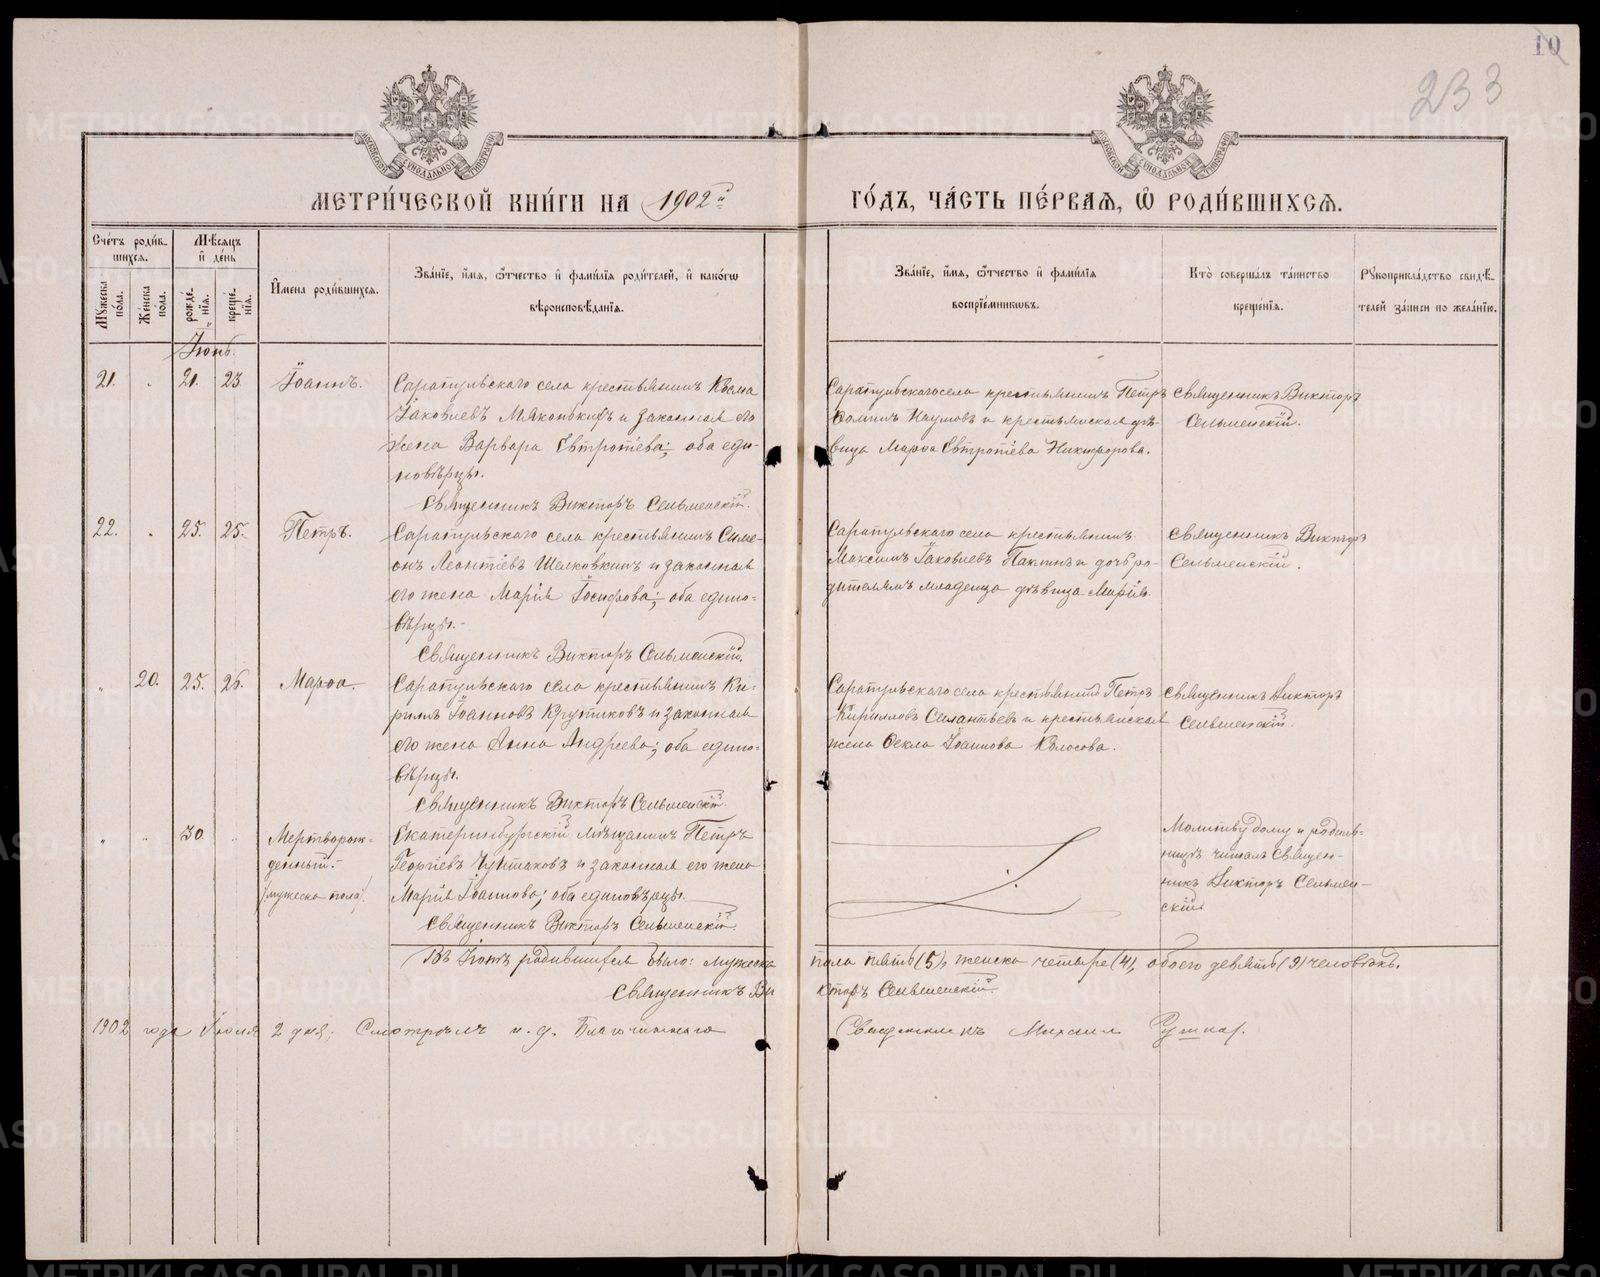 10
233
МЕТРИ́ЧЕСКОЙ КНИ́ГИ НА 1902й ГО́ДЪ, ЧА́СТЬ ПЕ́РВАЯ, Ѡ РОДИ́ВШИХСЯ.
Сче́тъ роди́в-
шихся.
Му́жеска по́ла.
Же́нска по́ла.
Мѣ́сяцъ и де́нь
рожде́-
нїя.
креще́-
нїя.
И҆мена роди́вшихся.
Зва́нїе, и҆́мя, ѻ҆́тчество и҆ фами́лїя роди́телей, и҆ како́гѡ
вѣроисповѣ́данїя.
Зва́нїе, и҆́мя, ѻ҆́тчество и҆ фами́лїя
воспрїе́мниковъ.
Кто̀ соверша́лъ та́инство
креще́нїя.
Рꙋкоприкла́дство свидѣ́-
телей за́писи по жела́нїю.
Іюнь.
21. 21. 23. Іоаннъ.
Сарапульскаго села крестьянинъ Косма
Іаковлевъ и законная его
жена Варвара Евтропіева; оба еди-
новѣрцы.
Священникъ Викторъ Сельменскій.
Сарапульскаго села крестьянинъ Петръ
Наумовъ и крестьянская дѣ-
вица Марѳа Евтропіева Никифорова.
Священникъ Викторъ
Сельменскій.
22. 25. 25. Петръ.
Сарапульскаго села крестьянинъ Симе-
онъ Леонтіевъ Шелковкинъ и законная
его жена Марія Іосифова; оба едино-
вѣрцы.
Священникъ Викторъ Сельменскій.
Сарапульскаго села крестьянинъ
Максимъ Іаковлевъ Паклинъ и дочь ро-
дителямъ младенца дѣвица Марія.
Священникъ Викторъ
Сельменскій.
20. 25. 26. Марѳа.
Сарапульскаго села крестьянинъ Ки-
риллъ Іоанновъ Крутиковъ и законная
его жена Анна Андреева; оба едино-
вѣрцы.
Священникъ Викторъ Сельменскій.
Сарапульскаго села крестьянинъ Петръ
Кирилловъ Силантьевъ и крестьянская
жена Ѳекла Іоаннова Колосова.
Священникъ Викторъ
Сельменскій.
30. Мертворож-
денный.
(мужеска пола).
Екатеринбургскій мѣщанинъ Петръ
Георгіевъ и законная его жена
Марія Іоаннова; оба единовѣрцы.
Священникъ Викторъ Сельменскій.
Молитву дому и родиль-
ницѣ читалъ Священ-
никъ Викторъ Сельмен-
скій.
Въ Іюнѣ родившихся было: мужеска пола пять (5), женска четыре (4), обоего девять (9) человѣкъ.
Священникъ Викторъ Сельменскій.
1902 года Іюля 2 дня; Смотрѣлъ и. д. Благочиннаго Священникъ Михаилъ